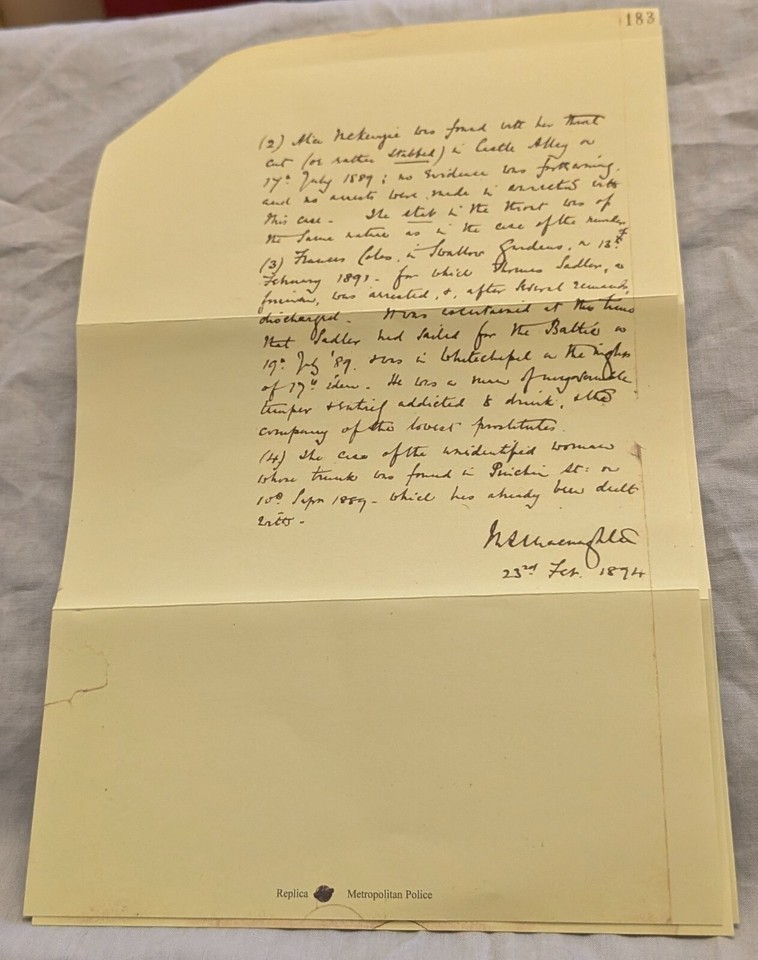 183
(2) Alice McKenzie was found with her throat
cut (or rather stabbed) in Castle Alley on
17th July 1889; no evidence was forthcoming,
and no arrests were made in connection with
this case. The stab in the throat was of
the same nature as in the case of the murder of
(3) Frances Coles, in Swallow Gardens, on 13th
February 1891 - for which Thomas Sadler, a
fireman, was arrested, &, after several remands,
discharged. It was ascertained at the time
that Sadler had sailed for the Baltic on
19th July '89. & was in Whitechapel on the night
of 17th idem. He was a man of ungovernable
temper & entirely addicted to drink, & the
company of the lowest prostitutes.
(4) The case of the unidentified woman
whose trunk was found in Pinchin St: on
10th Sept 1889 - which has already been dealt
with -
M L Macnaghten
23rd Feb. 1894
Replica Metropolitan Police